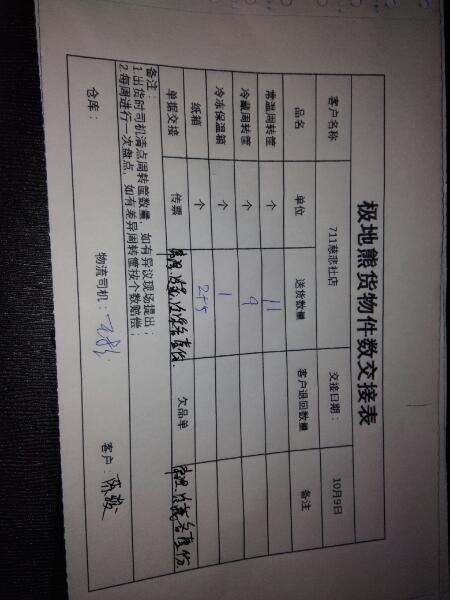 极地熊货物件数交接表
客户名称 711慈悲社店 交接日期： 10月9日
品名 单位 送货数量 客户退回数量 备注
常温周转筐 个 11
冷藏周转筐 个 9
冷冻保温箱 个 1
纸箱 个 2+5
单据交接 传票 欠品单
备注：
1.出货时司机清点周转筐数量，如有异议现场提出；
2.每周进行一次盘点，如有差异周转筐按个数赔偿；
仓库： 物流司机： 客户：陈毅